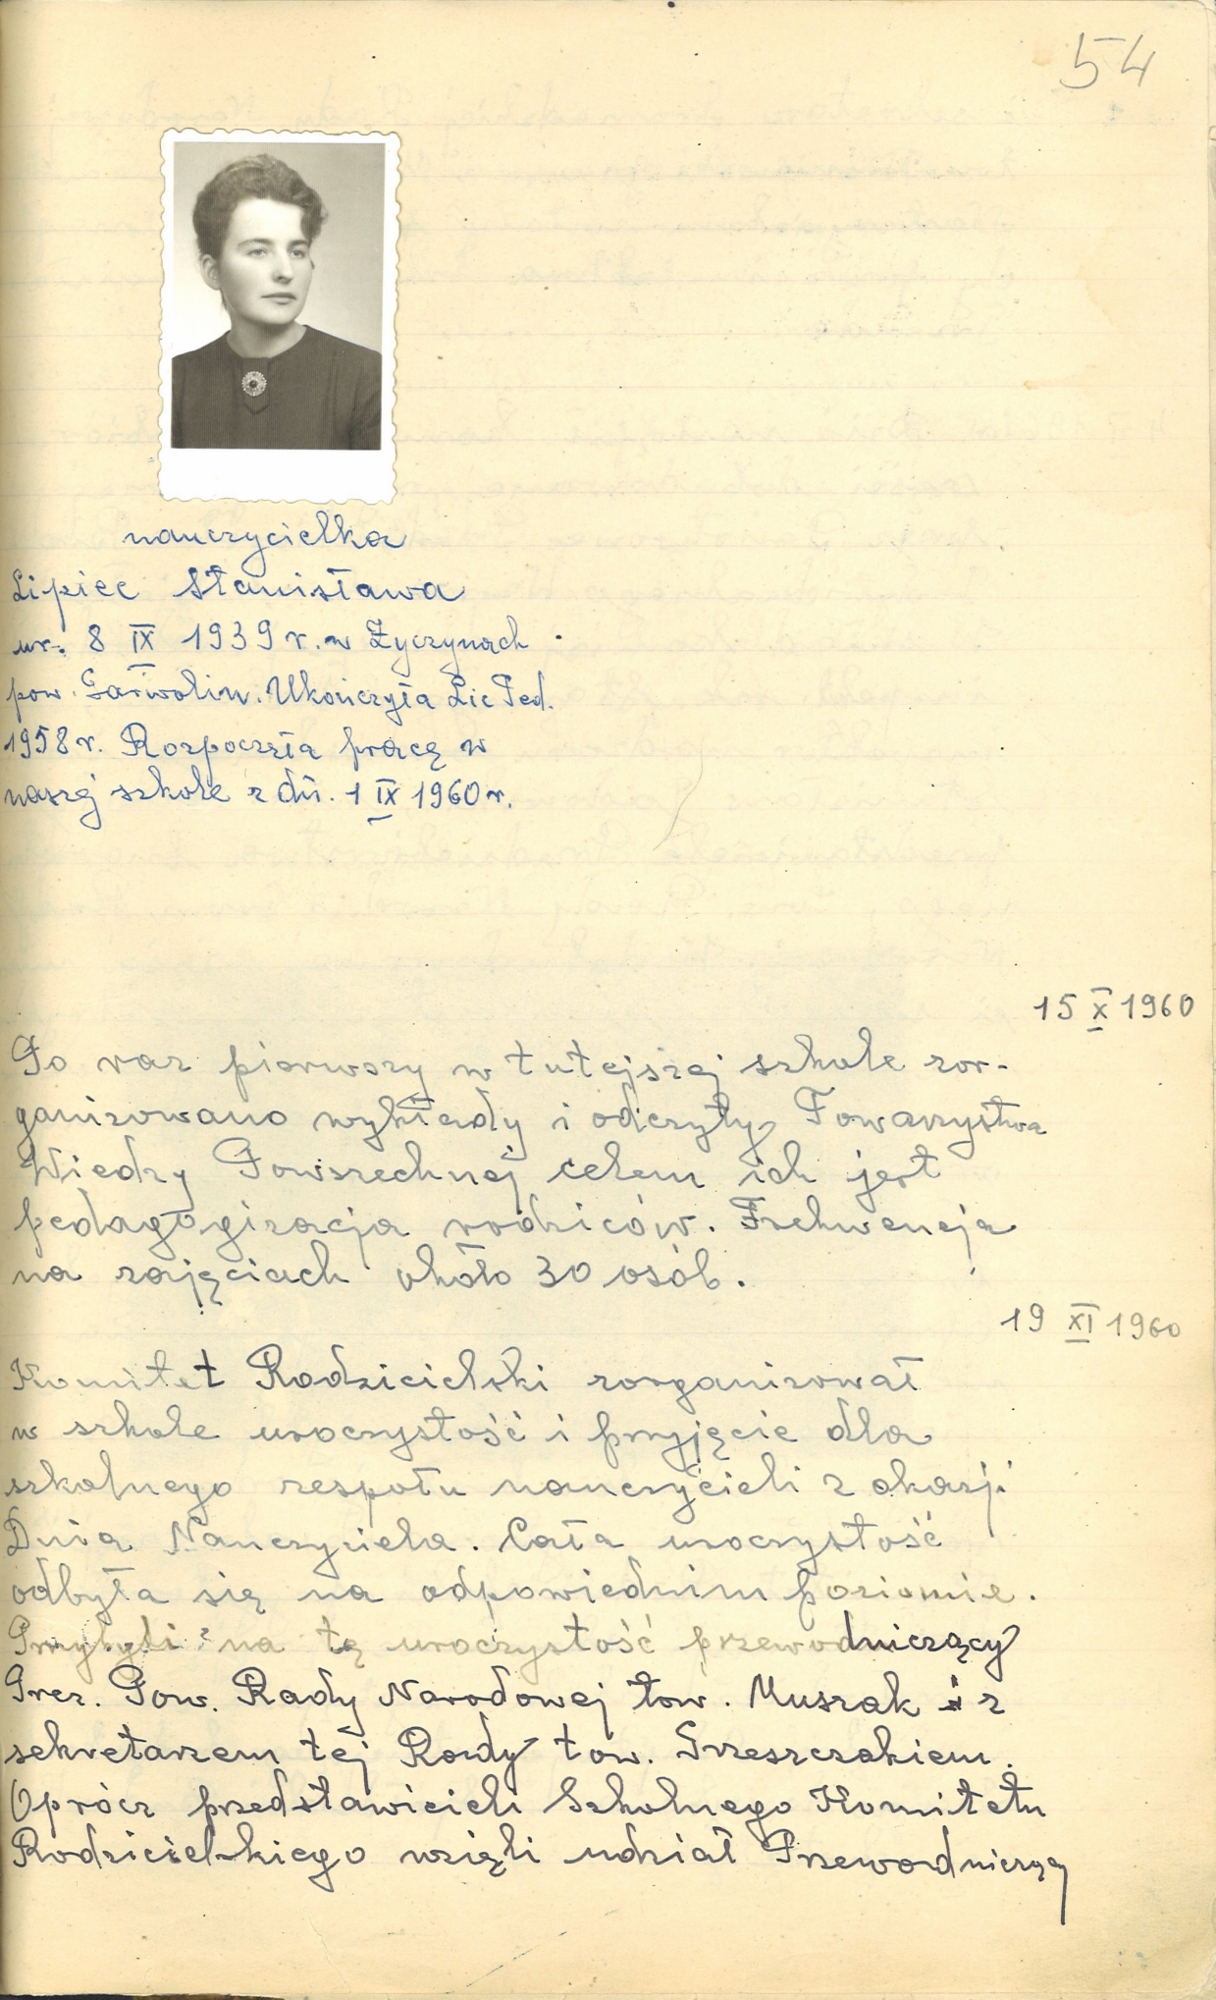 54
nauczycielka
Lipiec Stanisława
ur. 8 IX 1939 r. w Życzynach
pow. Garwolin. Ukończyła Lic Ped.
1958 r. Rozpoczęła pracę w
naszej szkole z dn. 1 IX 1960 r.
15 X 1960
Po raz pierwszy w tutejszej szkole zor-
ganizowano wykłady i odczyty Towarzystwa
Wiedzy Powszechnej celem ich jest
pedagogizacja rodziców. Frekwencja
na zajęciach około 30 osób.
19 XI 1960
Komitet Rodzicielski zorganizował
w szkole uroczystość i przyjęcie dla
szkolnego zespołu nauczycieli z okazji
Dnia Nauczyciela. Cała uroczystość
odbyła się na odpowiednim poziomie.
Przybyli na tę uroczystość przewodniczący
Prez. Pow. Rady Narodowej tow. Muszak z
sekretarzem tej Rady tow. Grzeszczakiem.
Oprócz przedstawicieli Szkolnego Komitetu
Rodzicielskiego wzięli udział Przewodniczący